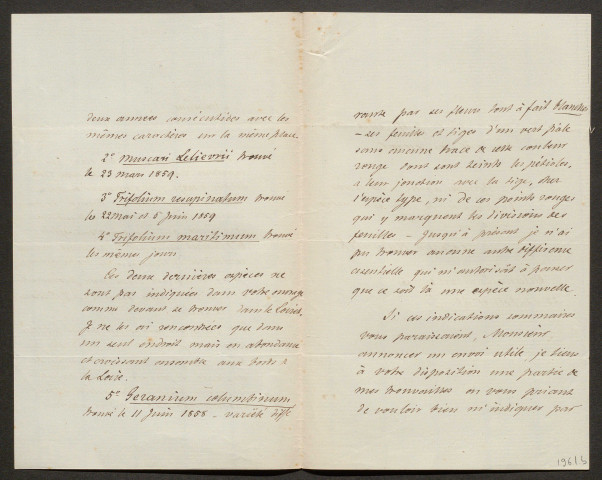 deux années consécutives avec les
mêmes caractères sur la même place.
2º Muscari Lelievrii trouvé
le 23 mars 1859.
3º Trifolium resupinatum trouvé
les 22 mai et 5 Juin 1859
4º Trifolium maritimum trouvé
les mêmes jours
Ces deux dernières espèces ne
sont pas indiquées dans votre ouvrage
comme devant se trouver dans le Loiret.
Je ne les ai rencontrées que dans
un seul endroit mais en abondance
et croissant ensemble aux bords de
la Loire.
5º Geranium columbinum
trouvé le 11 Juin 1858 - variété diffé
rante par ses fleurs tout à fait blanches
- ses feuilles et tiges d'un vert pâle
sans aucune trace de cette couleur
rouge dont sont teints les pétioles,
à leur jonction avec la tige, chez
l'espèce type, ni de ces points rouges
qui y marquent les divisions des
feuilles - Jusqu'à présent je n'ai
pu trouver aucune autre différence
essentielle qui m'autorisât à penser
que ce soit là une espèce nouvelle.
Si ces indications sommaires
vous paraissaient, Monsieur,
annoncer un envoi utile je tiens
à votre disposition une partie de
mes trouvailles en vous priant
de vouloir bien m'indiquer par
196/b